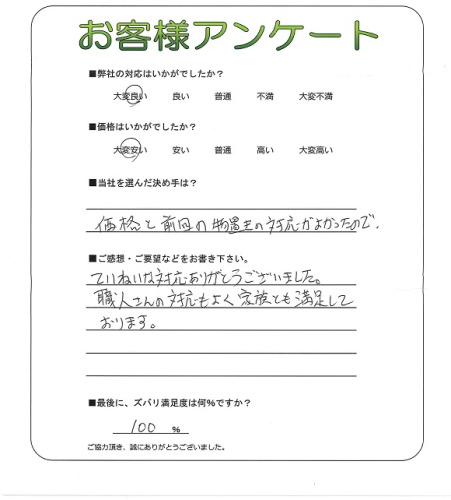 お客様アンケート
■弊社の対応はいかがでしたか?
大変良い 良い 普通 不満 大変不満
■価格はいかがでしたか?
大変安い 安い 普通 高い 大変高い
■当社を選んだ決め手は?
価格と前回の物置きの対応がよかったので。
■ご感想・ご要望などをお書き下さい。
ていねいな対応ありがとうございました。
職人さんの対応もよく家族とも満足して
おります。
■最後に、ズバリ満足度は何%ですか?
100 %
ご協力頂き、誠にありがとうございました。